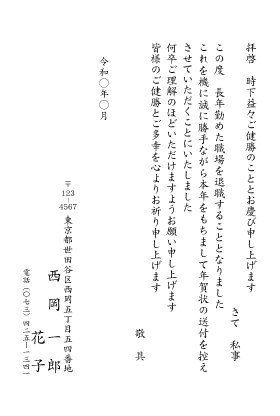 拝啓　時下益々ご健勝のこととお慶び申し上げます
さて　私事
この度　長年勤めた職場を退職することとなりました
これを機に誠に勝手ながら本年をもちまして年賀状の送付を控え
させていただくことにいたしました
何卒ご理解のほどいただけますようお願い申し上げます
皆様のご健勝とご多幸を心よりお祈り申し上げます
敬具
令和〇年〇月
〒123-4567
東京都世田谷区西岡五丁目五四番地
西岡一郎
花子
電話（〇七三）四二五ー一三四一